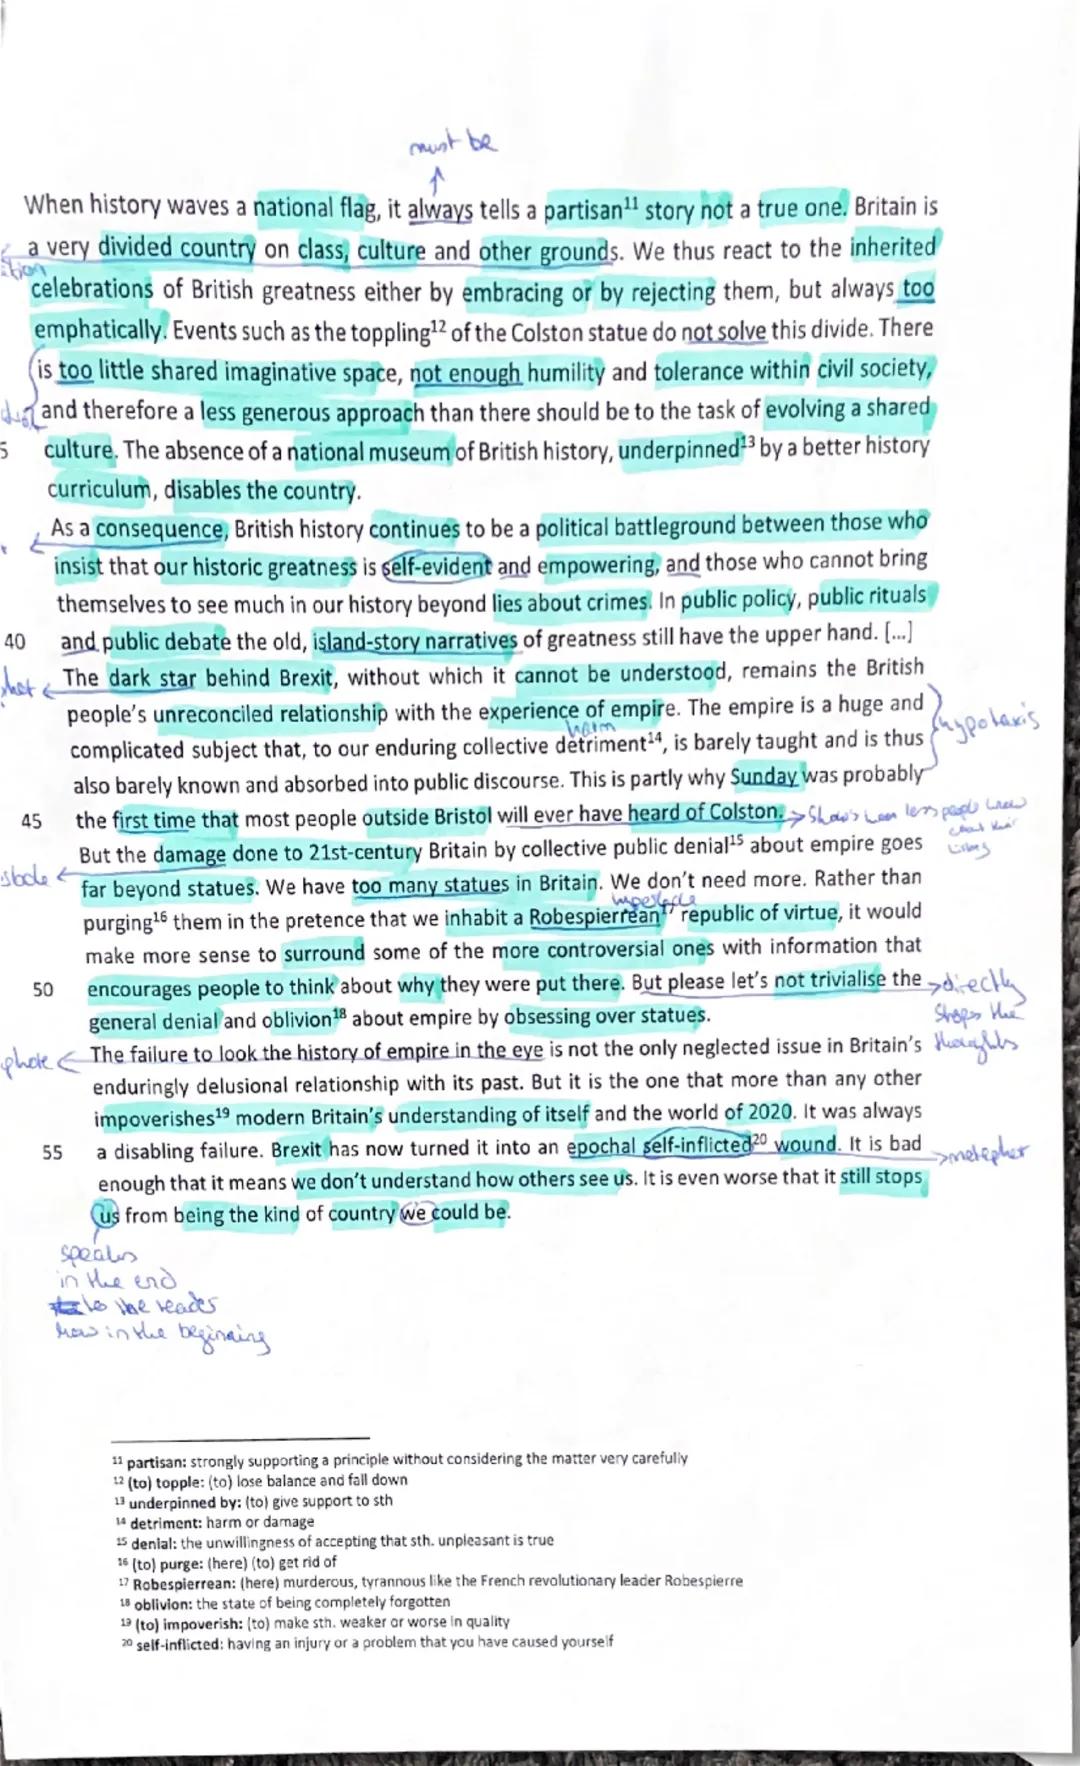 must be
When history waves a national flag, it always tells a partisan¹¹ story not a true one. Britain is
a very divided country on class, culture and other grounds. We thus react to the inherited
celebrations of British greatness either by embracing or by rejecting them, but always too
emphatically. Events such as the toppling¹² of the Colston statue do not solve this divide. There
is too little shared imaginative space, not enough humility and tolerance within civil society,
and therefore a less generous approach than there should be to the task of evolving a shared
5 culture. The absence of a national museum of British history, underpinned¹³ by a better history
curriculum, disables the country.
As a consequence, British history continues to be a political battleground between those who
insist that our historic greatness is self-evident and empowering, and those who cannot bring
themselves to see much in our history beyond lies about crimes. In public policy, public rituals
40 and public debate the old, island-story narratives of greatness still have the upper hand. [...]
The dark star behind Brexit, without which it cannot be understood, remains the British
people's unreconciled relationship with the experience of empire. The empire is a huge and
hypotaxis
harm
complicated subject that, to our enduring collective detriment¹⁴, is barely taught and is thus
also barely known and absorbed into public discourse. This is partly why Sunday was probably
45 the first time that most people outside Bristol will ever have heard of Colston. Shows how less people know
about their
history
But the damage done to 21st-century Britain by collective public denial¹⁵ about empire goes
far beyond statues. We have too many statues in Britain. We don't need more. Rather than
purging¹⁶ them in the pretence that we inhabit a Robespierrean¹⁷ republic of virtue, it would
make more sense to surround some of the more controversial ones with information that
50 encourages people to think about why they were put there. But please let's not trivialise the directly
general denial and oblivion¹⁸ about empire by obsessing over statues. stops the
thoughts
phore The failure to look the history of empire in the eye is not the only neglected issue in Britain's
enduringly delusional relationship with its past. But it is the one that more than any other
impoverishes¹⁹ modern Britain's understanding of itself and the world of 2020. It was always
55 a disabling failure. Brexit has now turned it into an epochal self-inflicted²⁰ wound. It is bad metepher
enough that it means we don't understand how others see us. It is even worse that it still stops
us from being the kind of country we could be.
speaks
in the end
to the reader
how in the beginning
¹¹ partisan: strongly supporting a principle without considering the matter very carefully
¹² (to) topple: (to) lose balance and fall down
¹³ underpinned by: (to) give support to sth
¹⁴ detriment: harm or damage
¹⁵ denial: the unwillingness of accepting that sth. unpleasant is true
¹⁶ (to) purge: (here) (to) get rid of
¹⁷ Robespierrean: (here) murderous, tyrannous like the French revolutionary leader Robespierre
¹⁸ oblivion: the state of being completely forgotten
¹⁹ (to) impoverish: (to) make sth. weaker or worse in quality
²⁰ self-inflicted: having an injury or a problem that you have caused yourself